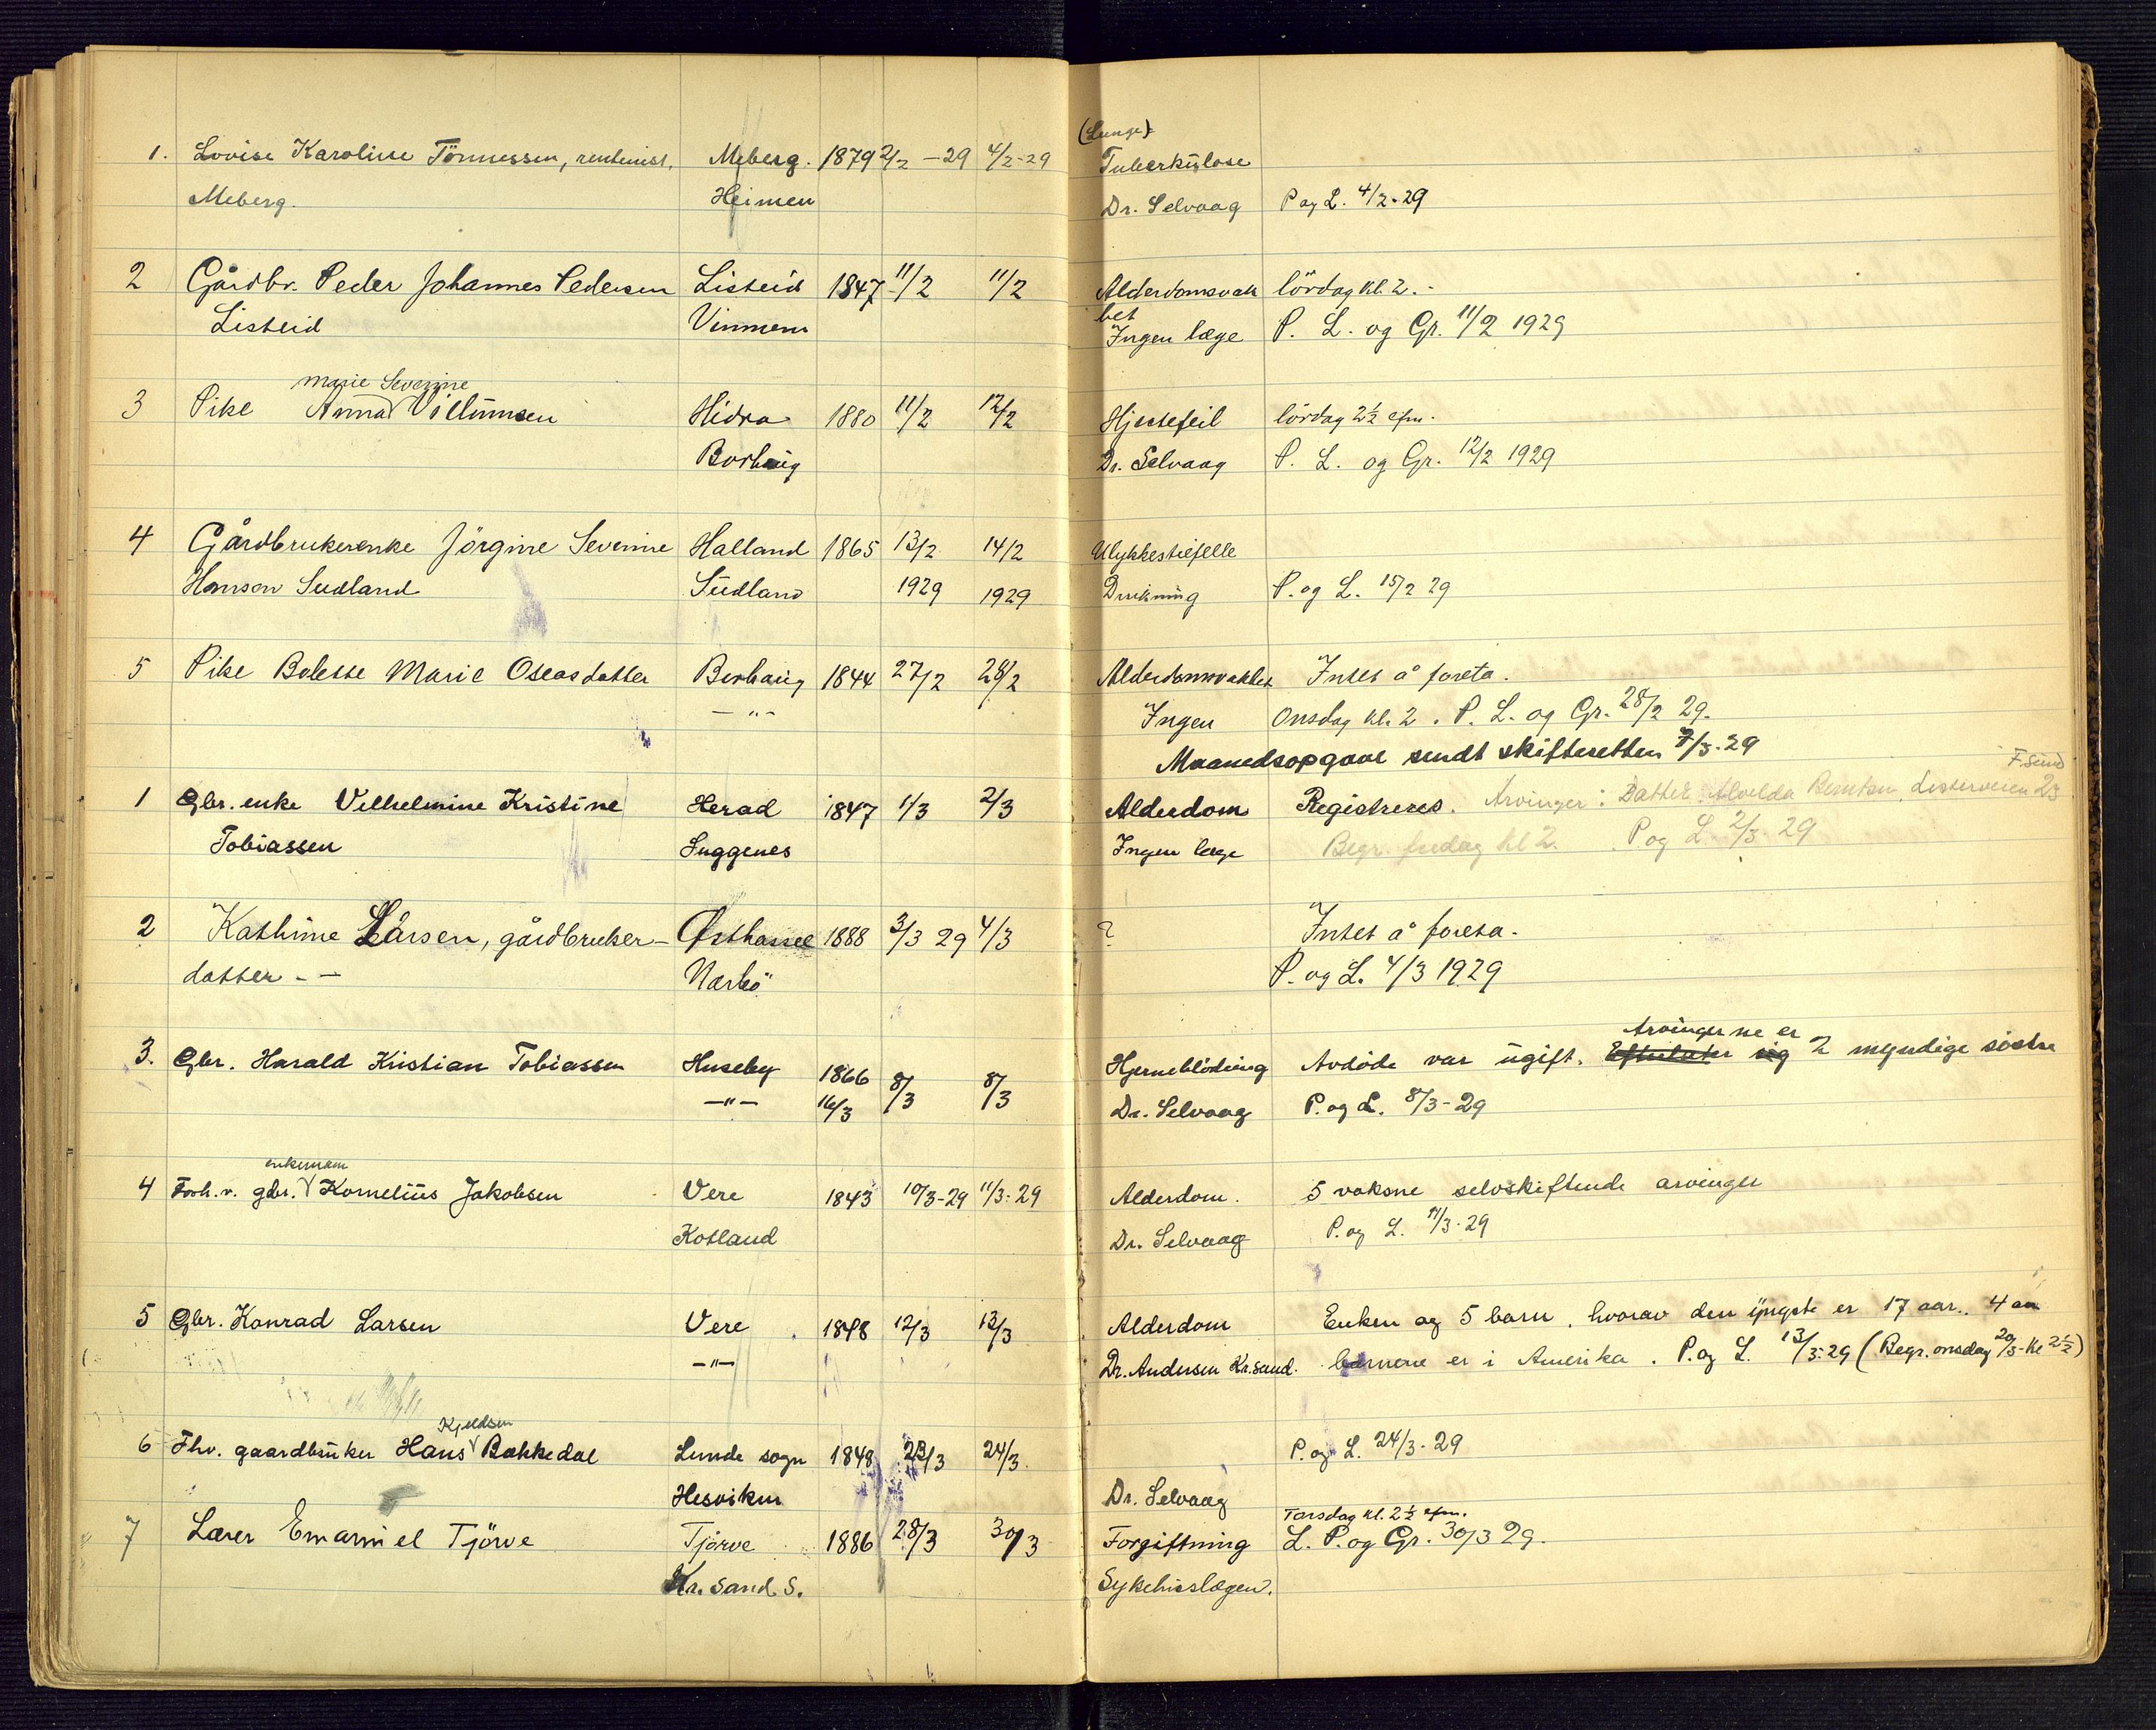 (Lunge)
1. Lovise Karoline Tönnessen, rentenist, Meberg. 1879 2/2 - 29 4/2-29 Tuberkulose
Meberg. Heimen Dr. Selvaag P og L. 4/2-29
2 Gårdbr. Peder Johannes Pedersen Listeid 1847 11/2 11/2 Alderdomsvak lördag kl. 2.-
Listeid Vinmem het
Ingen læge P. L. og Gr. 11/2 1929
Marie Severine
3 Pike Anna Villumsen Hidra 1880 11/2 12/2 Hjertefeil lördag 2½ efm.
Borhaug Dr. Selvaag P. L. og Gr. 12/2 1929
4 Gårdbrukerenke Jörgine Severine Halland 1865 13/2 14/2 Ulykkestilfelle
Hanson Sudland Sudland 1929 1929 Drukning P. og L. 15/2 29
5 Pike Bolette Marie Oseasdatter Borhaug 1844 27/2 28/2 Alderdomsvakhet Intet å foreta.
-"- Ingen Onsdag kl. 2. P. L. og Gr. 28/2 29.
Maanedsopgave sendt skifteretten 7/3-29
F.sund
1 Gbr. enke Vilhelmine Kristine Herad 1847 1/3 2/3 Alderdom Registreres. Arvinger: Datter Alvelda Berntsen, Listerveien 23
Tobiassen Suggenes Ingen læge Begr. fredag kl 2. P og L 2/3 29
2 Kathinne Larsen, gårdbruker- Østhassel 1888 3/3 29 4/3 ? Intet å foreta.
datter - - Narbö P. og L. 4/3 1929
Arvingerne er
3. Gbr. Harald Kristian Tobiassen Huseby 1866 8/3 8/3 Hjerneblödning Avdöde var ugift. Efterlater sig 2 myndige söstre
-"- 16/3 Dr. Selvaag P. og L. 8/3-29
enkemann
4 Forh. v. gbr. Kornelius Jakobsen Vere 1843 10/3-29 11/3-29 Alderdom. 5 voksne selvskiftende arvinger
Kotland Dr. Selvaag P. og L. 11/3-29
5 Gbr. Konrad Larsen Vere 1848 12/3 13/3 Alderdom Enken og 5 barn, hvorav den yngste er 17 aar. 4 av
-"- Dr. Andersen Kr.sand. barnene er i Amerika. P. og L. 13/3-29 (Begr. onsdag 20/3-kl 2½)
Kjeldsen
6 Fhv. gaardbruker Hans Bakkedal Lunde sogn 1848 23/3 24/3 P. og L. 24/3-29
Hesviken Dr. Selvaag
Torsdag kl. 2½ efm.
7 Lærer Emanuel Tjörve Tjörve 1886 28/3 30/3 Forgiftning L. P. og Gr. 30/3 29.
Kr.sand. S. Sykehuslægen.